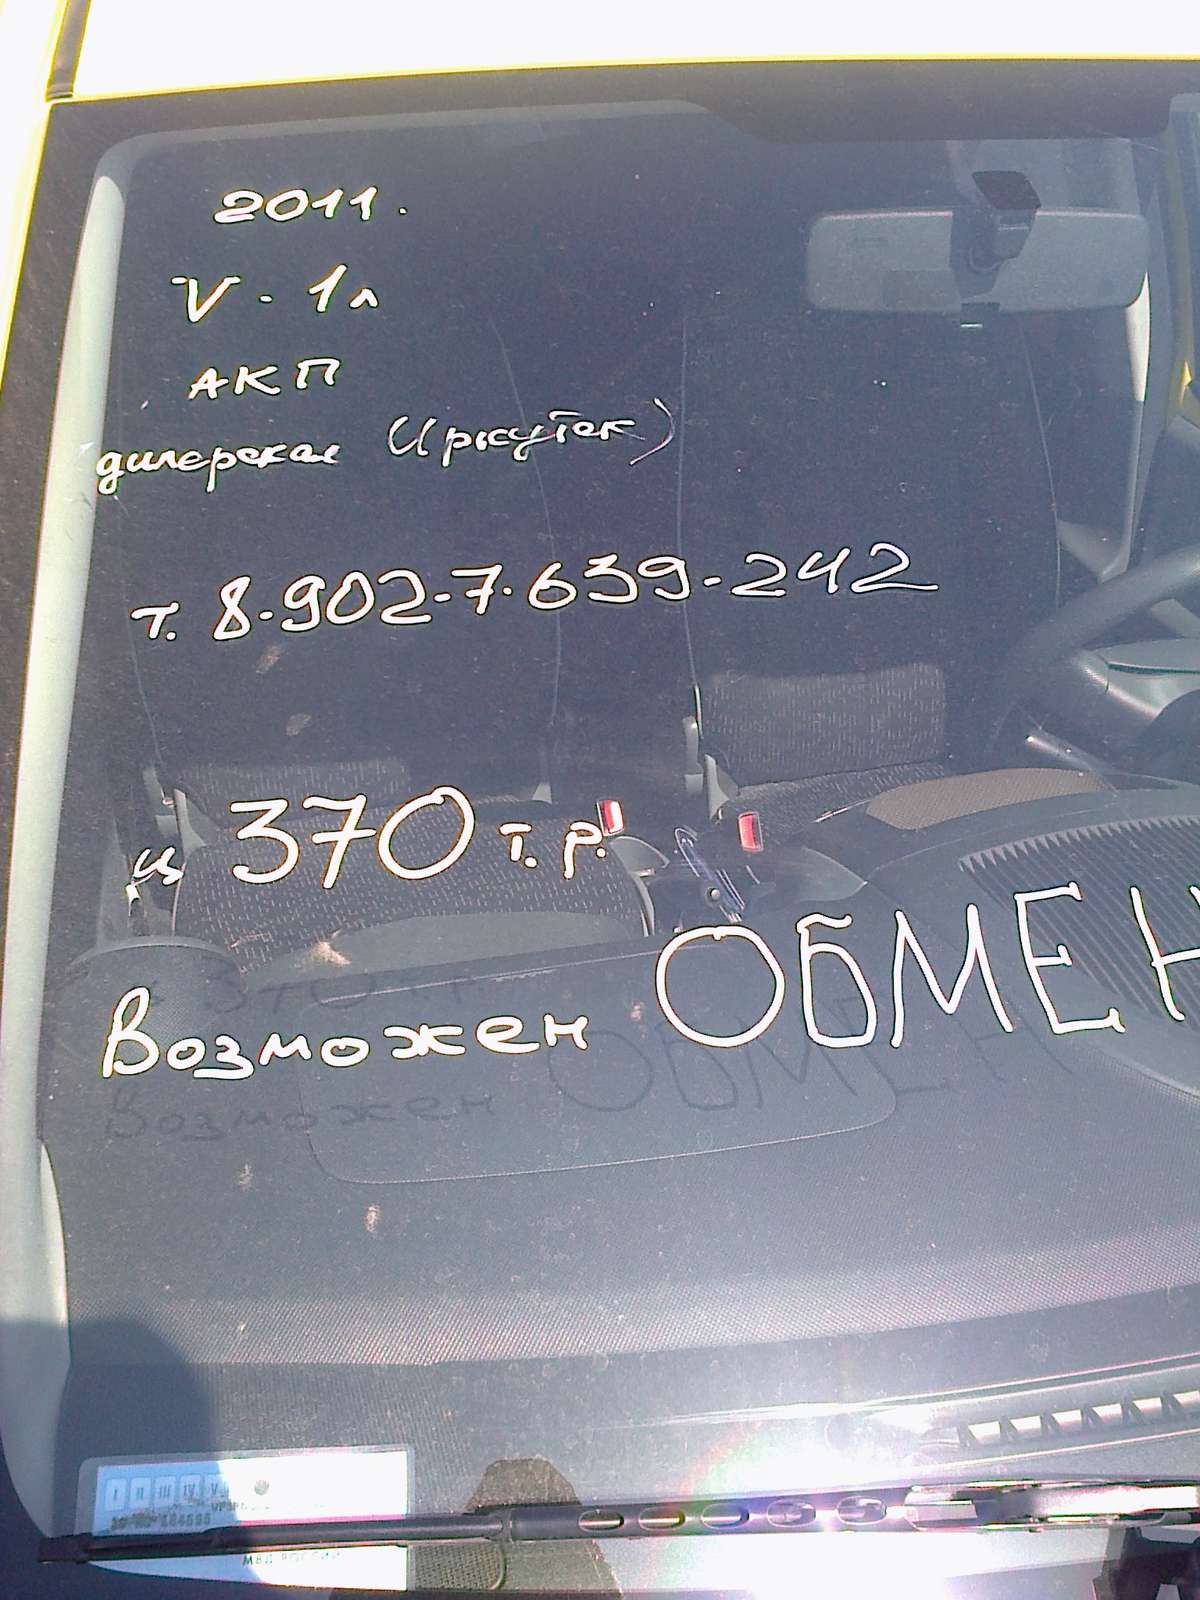 2011.
V - 1л
АКП
дилерская (Иркутск)
т. 8-902-7-639-242
ц 370 т.р.
Возможен ОБМЕН
I II III IV V
МВД РОССИИ